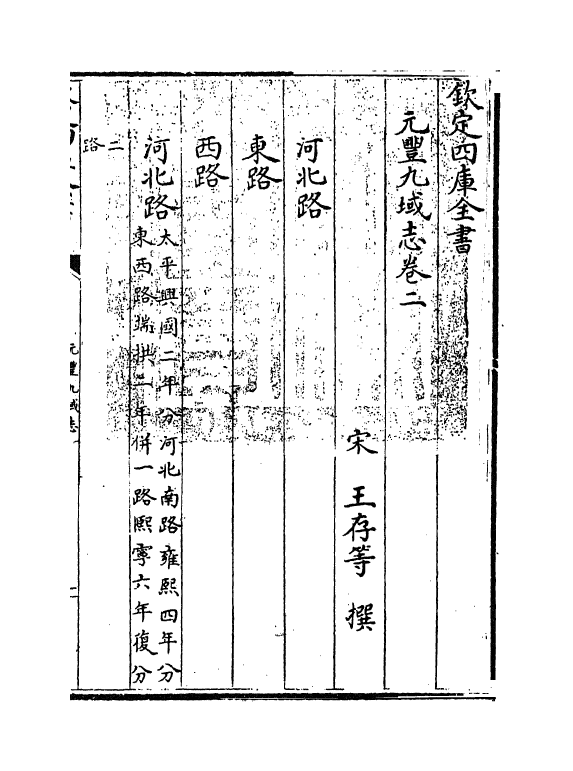 欽定四庫全書
元豐九域志卷二
宋 王存等 撰
河北路
東路
西路
河北路太平興國二年分河北南路雍熙四年分
東西路端拱二年併一路熙寧六年復分
二路
元豐九域志